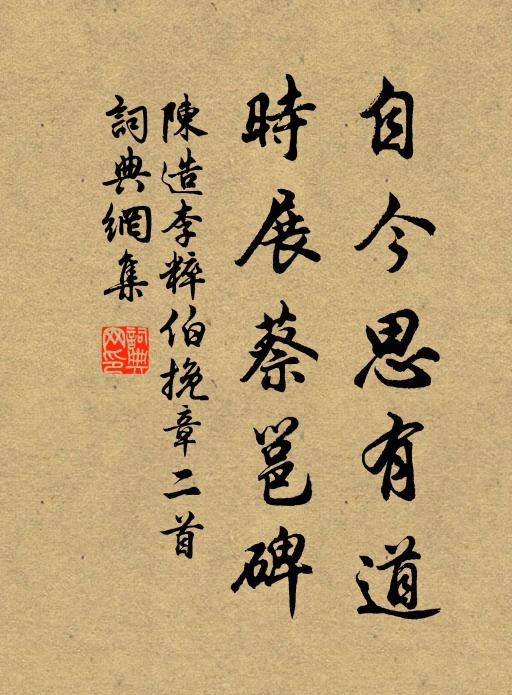 自今思有道
時展蔡邕碑
陳造李粹伯挽章二首
詞典網集
詞典網印